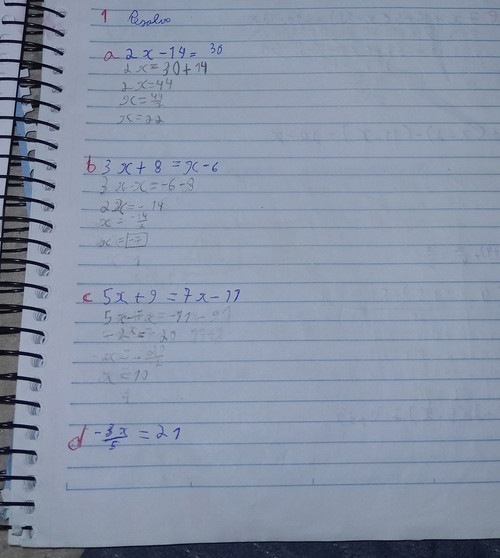 1 Resolva
a 2x-14= 30
2x=30+14
2x=44
x=44/2
x=22
b 3x+8=x-6
3x-x=-6-8
2x=-14
x=-14/2
x=-7
c 5x+9=7x-11
5x-7x=-11-9
x=10
d -3x/5=21